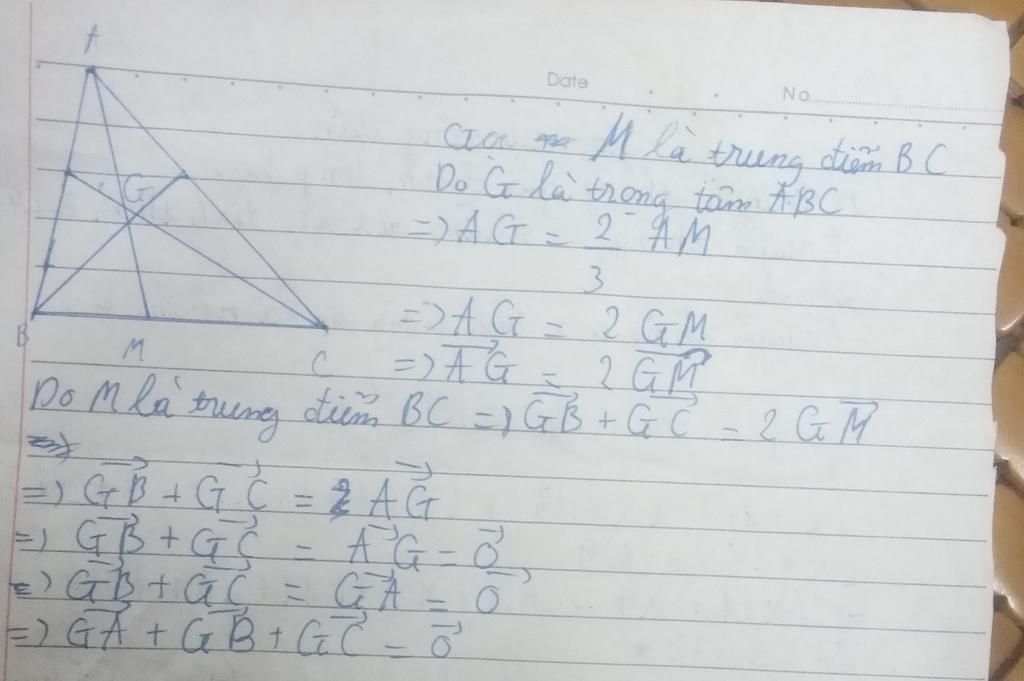 A
Date No
Gọi M là trung điểm BC
Do G là trọng tâm ABC
G
=> AG = 2/3 AM
=> AG = 2 GM
B M C
=> \overrightarrow{AG} = 2 \overrightarrow{GM}
Do M là trung điểm BC => \overrightarrow{GB} + \overrightarrow{GC} = 2 \overrightarrow{GM}
=> \overrightarrow{GB} + \overrightarrow{GC} = \overrightarrow{AG}
=> \overrightarrow{GB} + \overrightarrow{GC} = \overrightarrow{AG} = \overrightarrow{0}
=> \overrightarrow{GB} + \overrightarrow{GC} = \overrightarrow{GA} = \overrightarrow{0}
=> \overrightarrow{GA} + \overrightarrow{GB} + \overrightarrow{GC} = \overrightarrow{0}